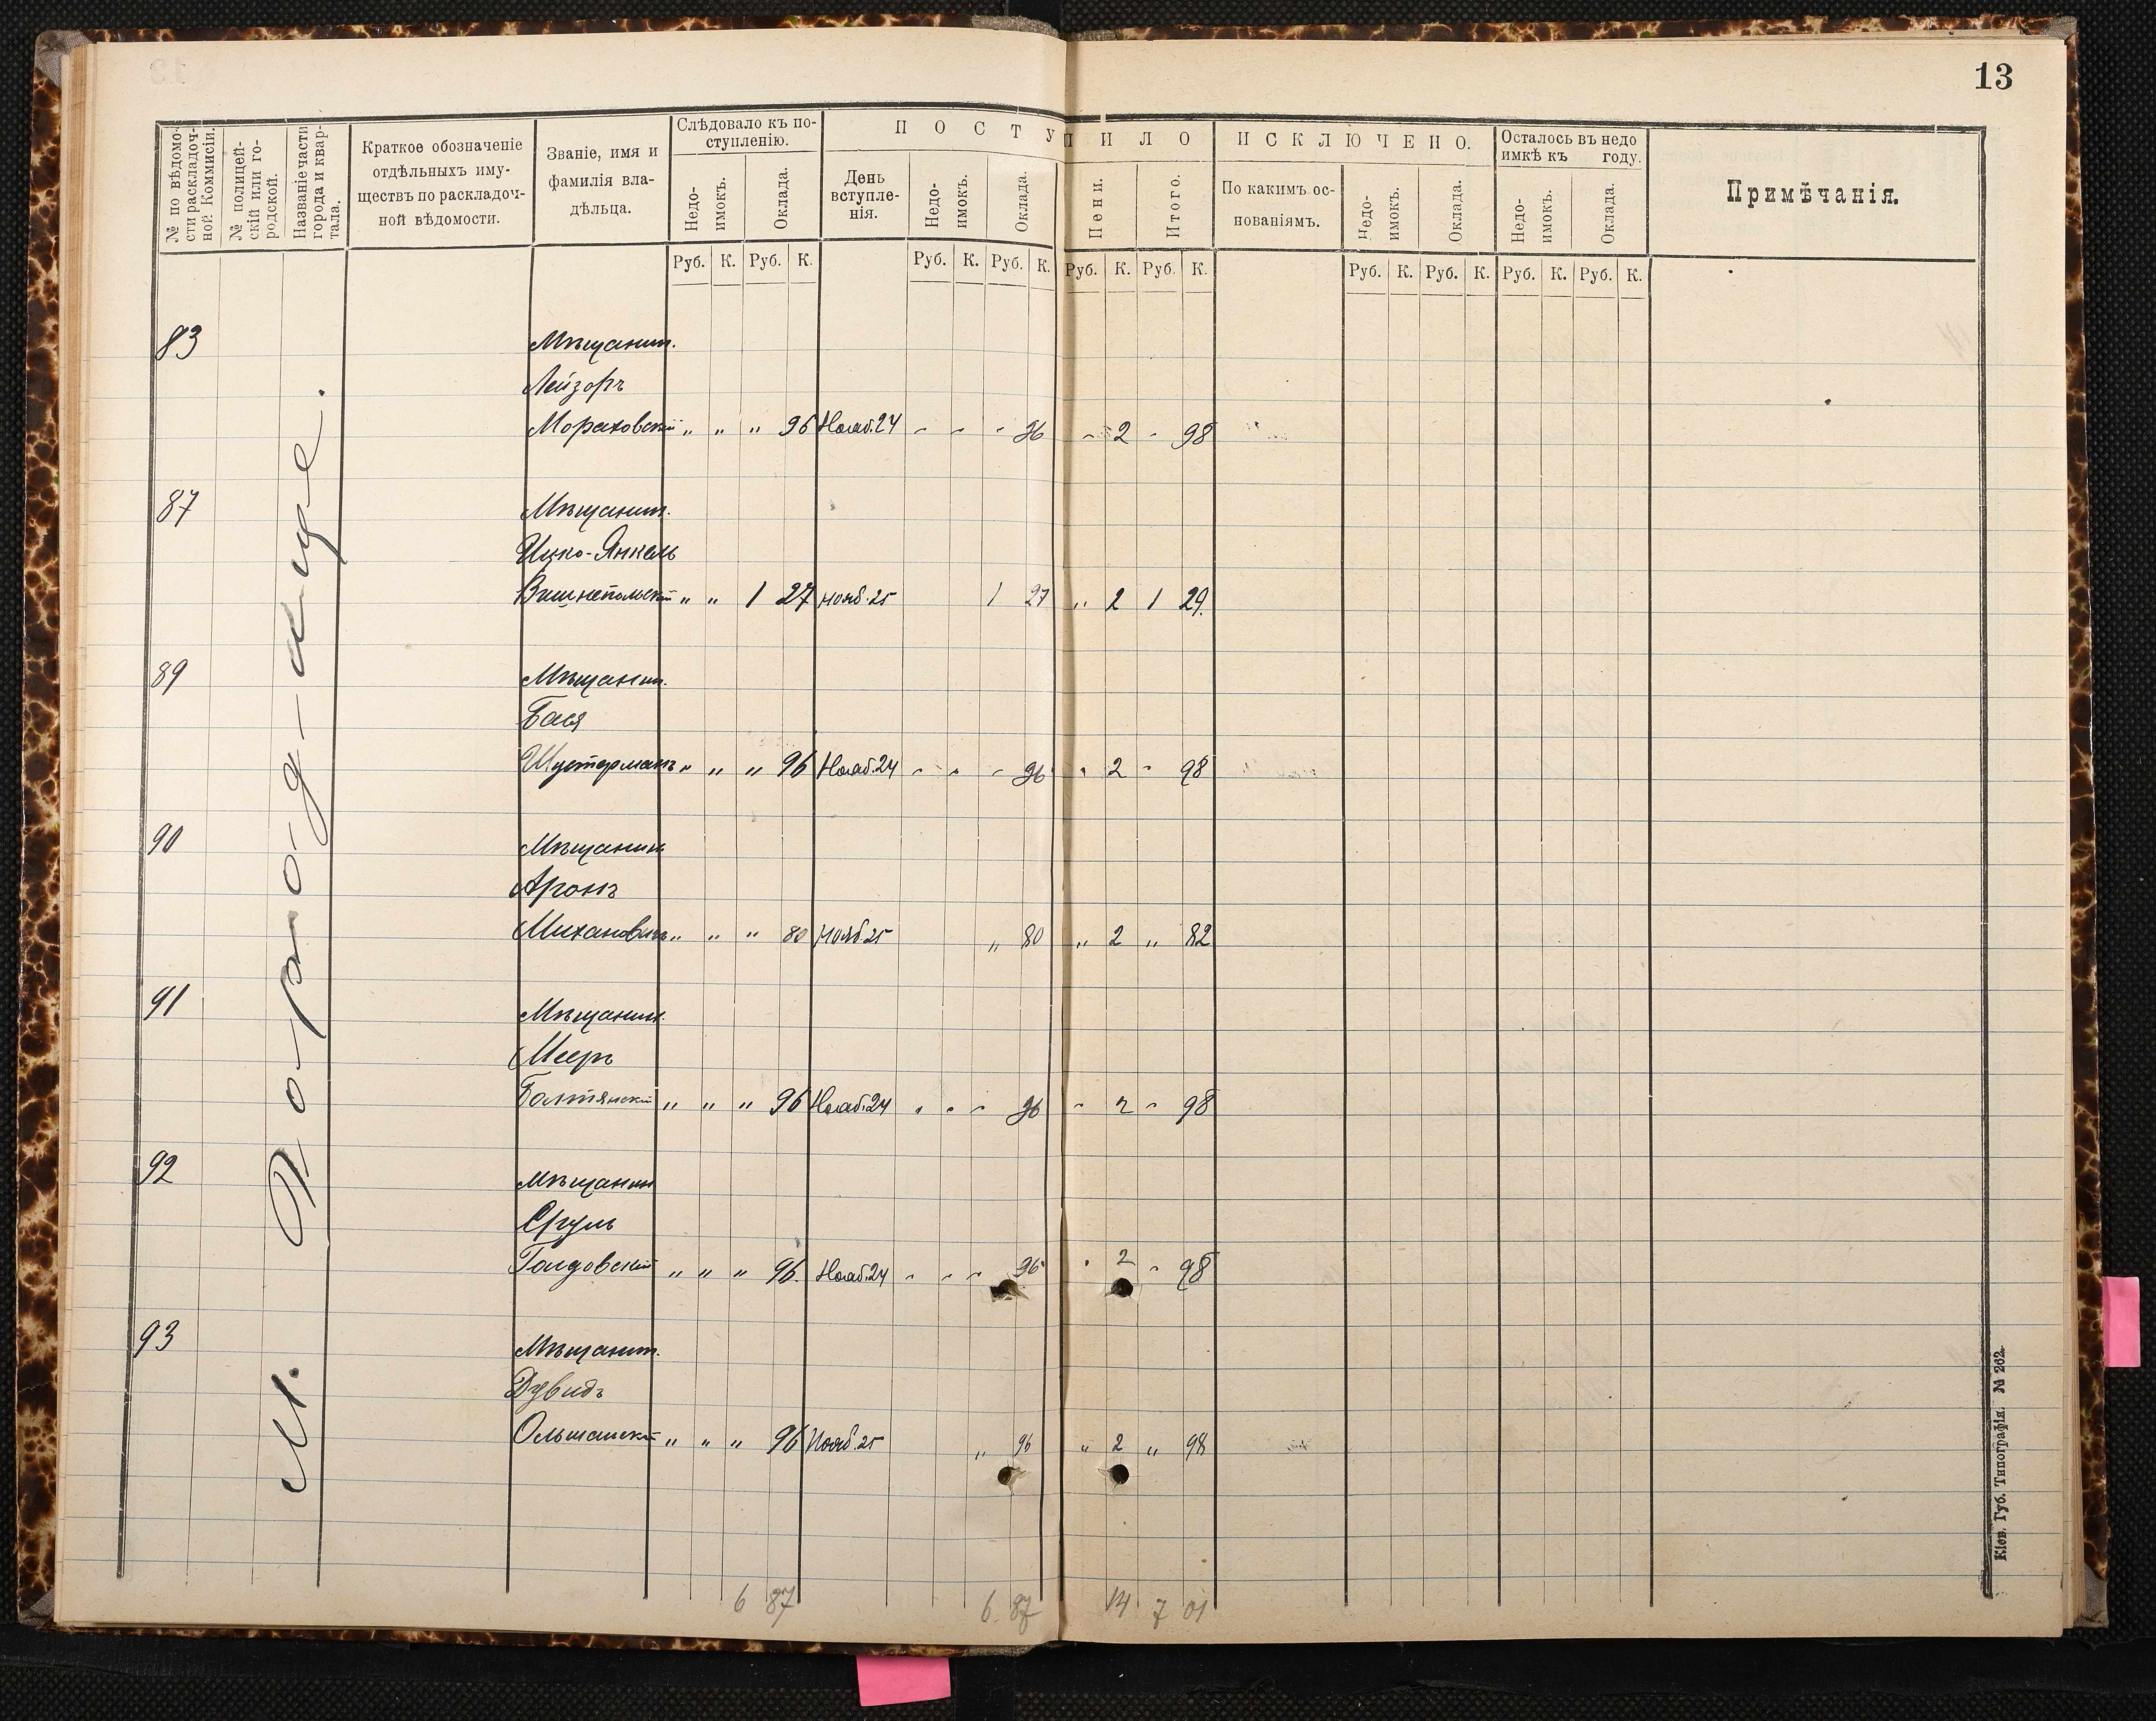 13
№ по вѣдомости раскладочной Коммисіи.
№ полицейскій или городской.
Названіе части города и квартала.
Краткое обозначеніе
отдѣльныхъ иму-
ществъ по раскладоч-
ной вѣдомости.
Званіе, имя и
фамилія вла-
дѣльца.
Слѣдовало къ по-
ступленію.
Недо-
имокъ.
Оклада.
ПОСТУПИЛО
День
вступле-
нія.
Недо-
имокъ.
Оклада.
Пени.
Итого.
ИСКЛЮЧЕНО.
По какимъ ос-
нованіямъ.
Недо-
имокъ.
Оклада.
Осталось въ недо
имкѣ къ году.
Недо-
имокъ.
Оклада.
Примѣчанія.
Руб. К. Руб. К. Руб. К. Руб. К. Руб. К. Руб. К. Руб. К. Руб. К. Руб. К. Руб. К.
М. Город-ище.
83 Мѣщанин.
Лейзоръ
Мораховскій „ „ „ 96 Нояб. 24 - - - 96 - 2 - 98
87 Мѣщанин.
Ицко-Янкель
Вишнепольскій „ „ 1 27 Нояб. 25 1 27 „ 2 1 29.
89 Мѣщанин.
Бася
Шустерманъ „ „ „ 96 Нояб. 24 - - - 96 - 2 - 98
90 Мѣщанин
Аронъ
„ „ „ 80 Нояб. 25 „ 80 „ 2 „ 82
91 Мѣщанин.
Мееръ
Балтянскій „ „ „ 96 Нояб. 24 - - - 96 - 2 - 98
92 Мѣщанин
Сруль
„ „ „ 96 Нояб. 24 - - - 96 - 2 - 98
93 Мѣщанин.
Дувидъ
Ольшанскій „ „ „ 96 Нояб. 25 „ 96 „ 2 „ 98
6 87 6 87 14 7 01
Кіев. Губ. Типографія. № 262.